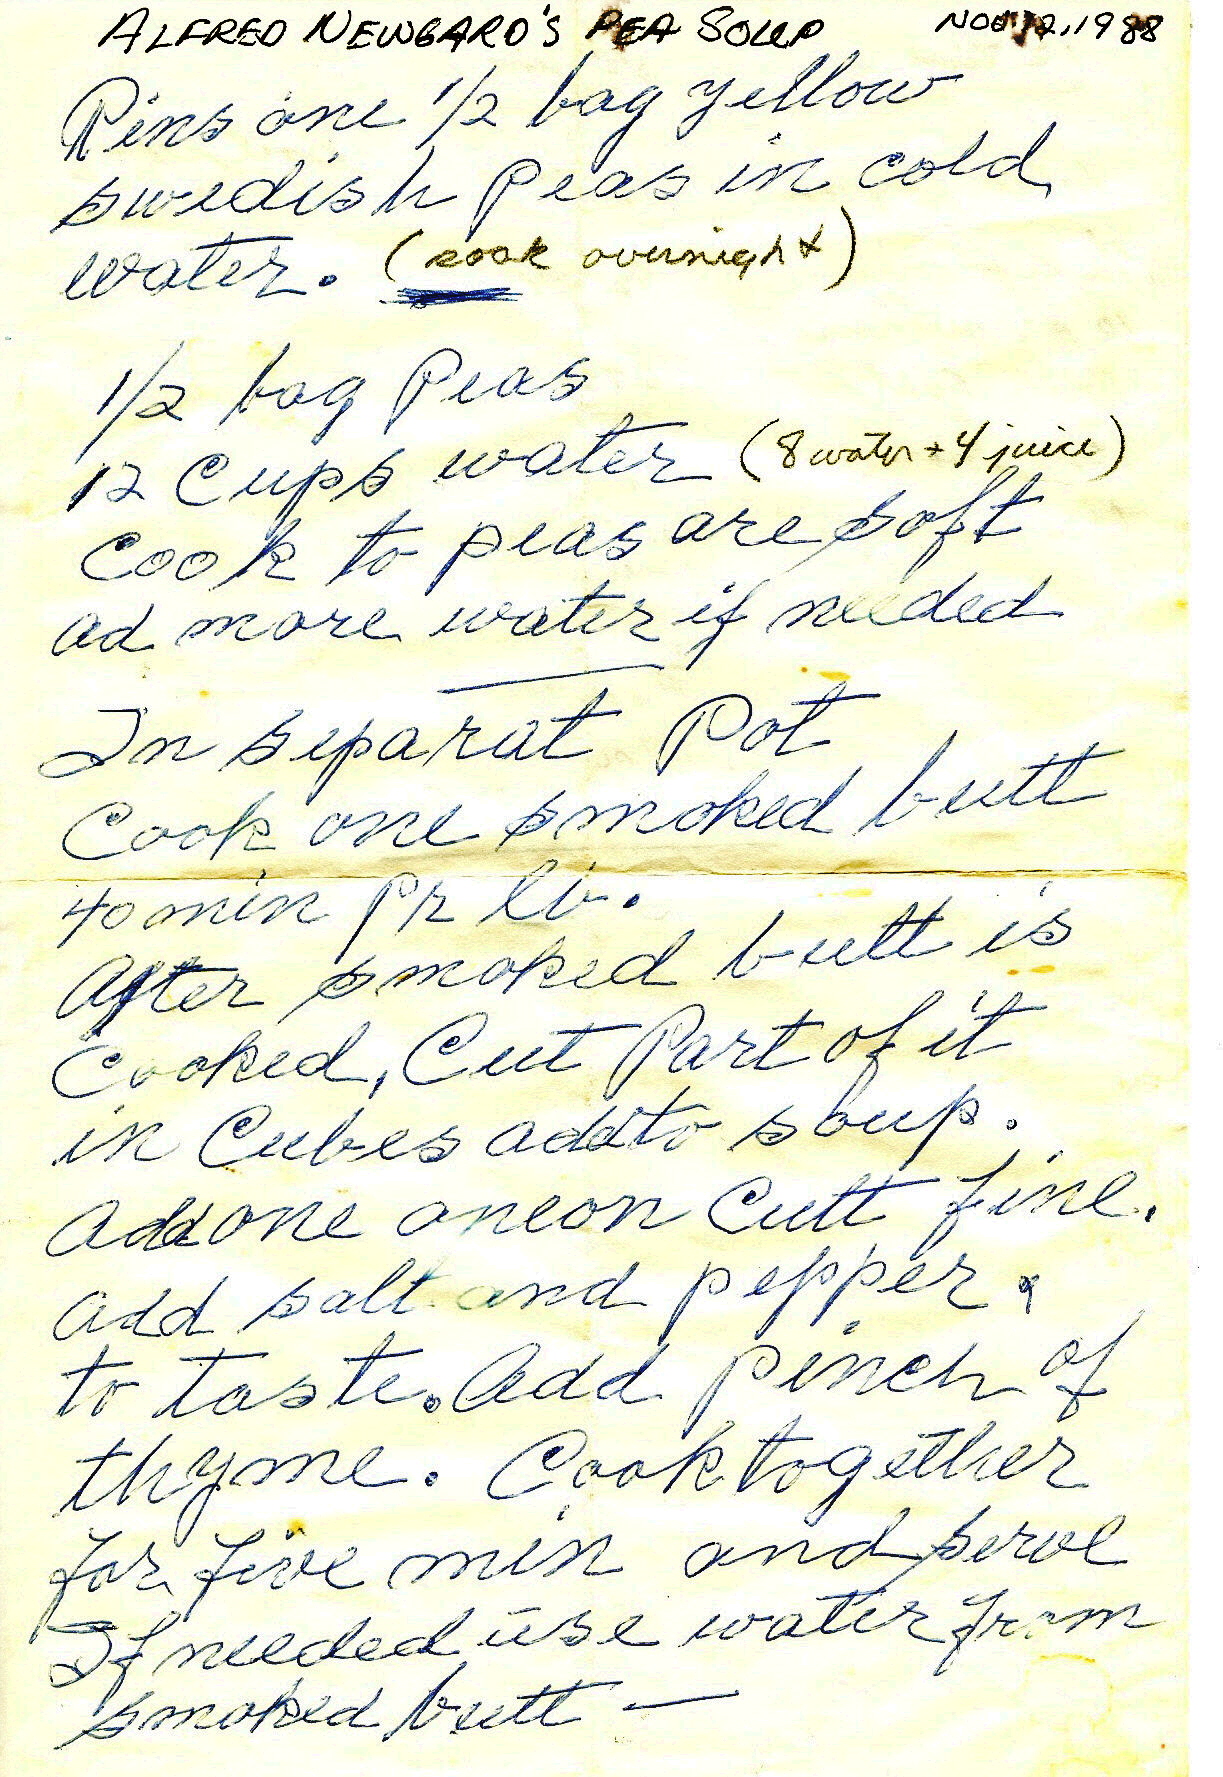 ALFRED NEWGARD'S PEA SOUP NOV 12, 1988
Rins one 1/2 bag yellow
swedish peas in cold
water. (soak overnight)
1/2 bag Peas
12 Cups water (8 water + 4 juice)
Cook to peas are soft
ad more water if needed
In separat Pot
Cook one smoked butt
40 min pr lb.
After smoked butt is
Cooked, Cut Part of it
in Cubes add to soup.
Add one oneon Cutt fine.
Add salt and pepper
to taste. Add pinch of
thyme. Cook together
for five min and serve
If needed use water from
smoked butt —